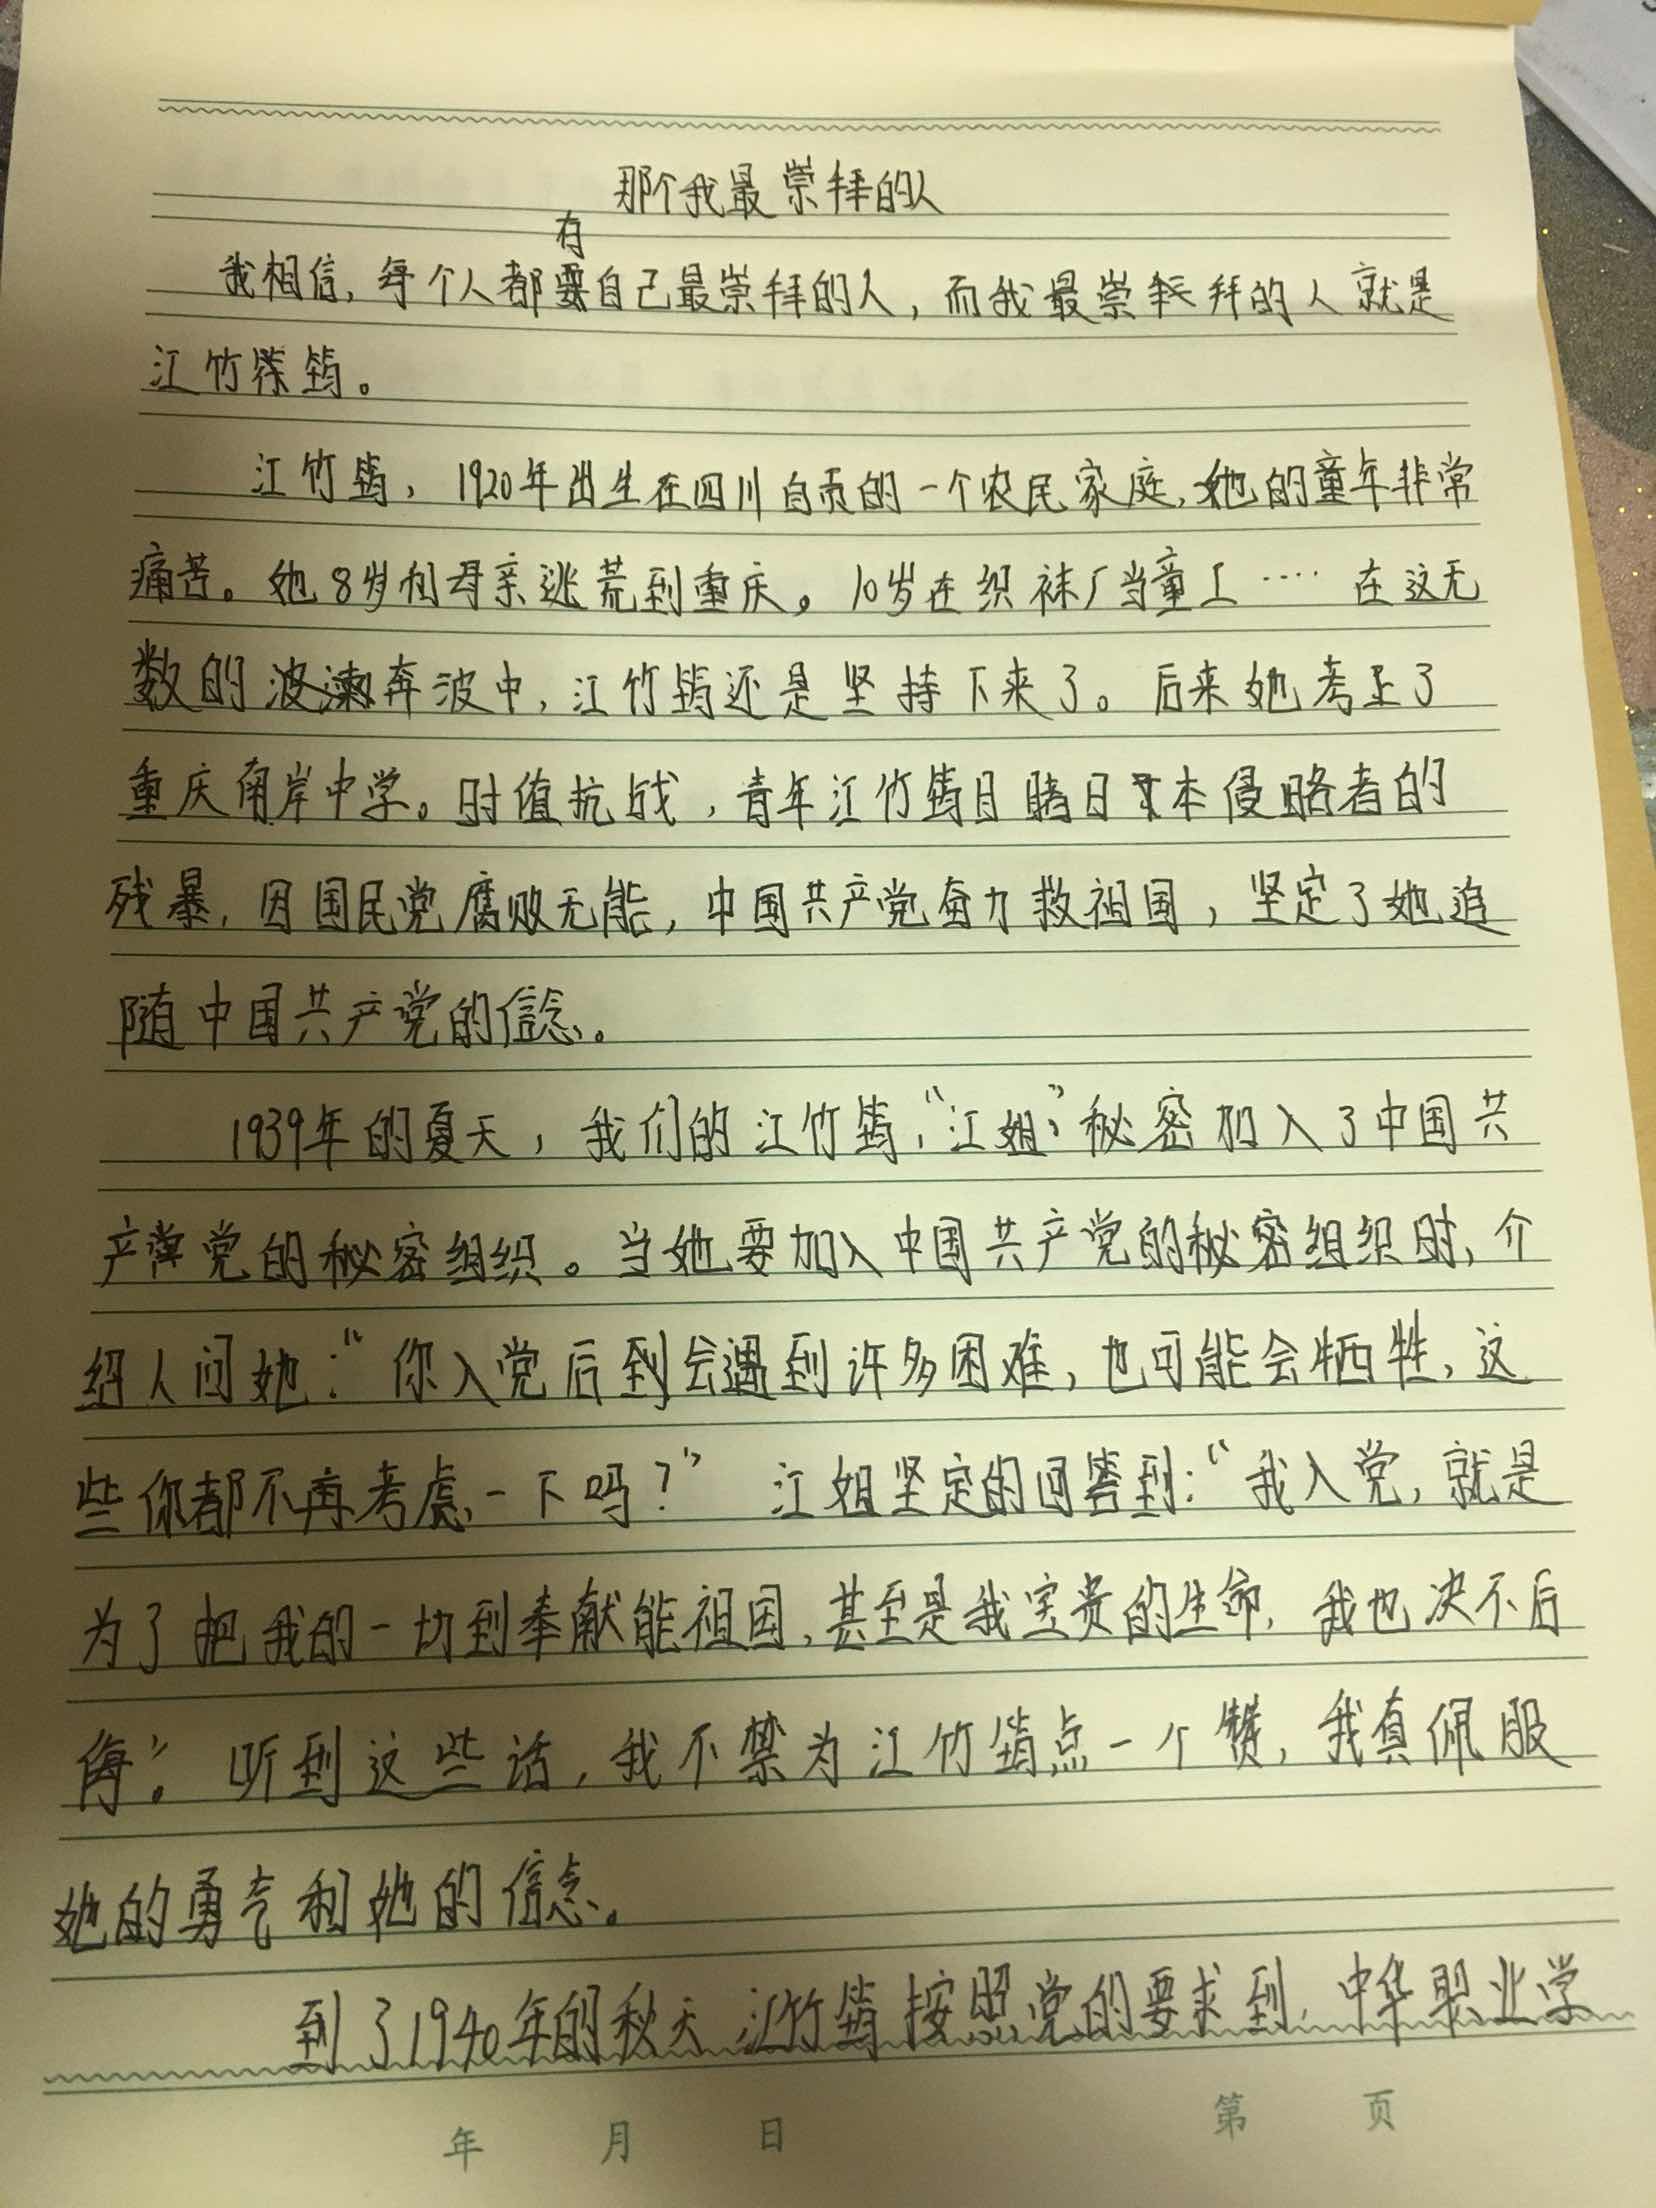 那个我最崇拜的人
我相信,每个人都有自己最崇拜的人,而我最崇拜的人就是
江竹筠。
江竹筠,1920年出生在四川自贡的一个农民家庭,她的童年非常
痛苦。她8岁和母亲逃荒到重庆。10岁在织袜厂当童工····在这无
数的奔波中,江竹筠还是坚持下来了。后来她考上了
重庆南岸中学。时值抗战,青年江竹筠目睹日本侵略者的
残暴,因国民党腐败无能,中国共产党奋力救祖国,坚定了她追
随中国共产党的信念。
1939年的夏天,我们的江竹筠,“江姐”秘密加入了中国共
产党的秘密组织。当她要加入中国共产党的秘密组织时,介
绍人问她:“你入党后到会遇到许多困难,也可能会牺牲,这
些你都不再考虑一下吗?” 江姐坚定的回答到:“我入党,就是
为了把我的一切到奉献能祖国,甚至是我宝贵的生命,我也决不后
悔”。听到这些话,我不禁为江竹筠点一个赞,我真佩服
她的勇气和她的信念。
到了1940年的秋天江竹筠按照党的要求到,中华职业学
年 月 日
第 页